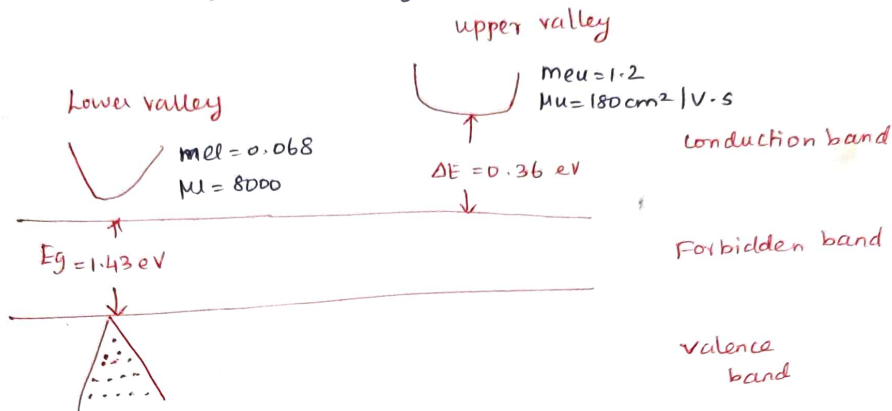 upper valley
meu = 1.2
μu = 180 cm² / V·s
Lower valley
mel = 0.068
μl = 8000
ΔE = 0.36 eV
conduction band
Eg = 1.43 eV
Forbidden band
valence
band